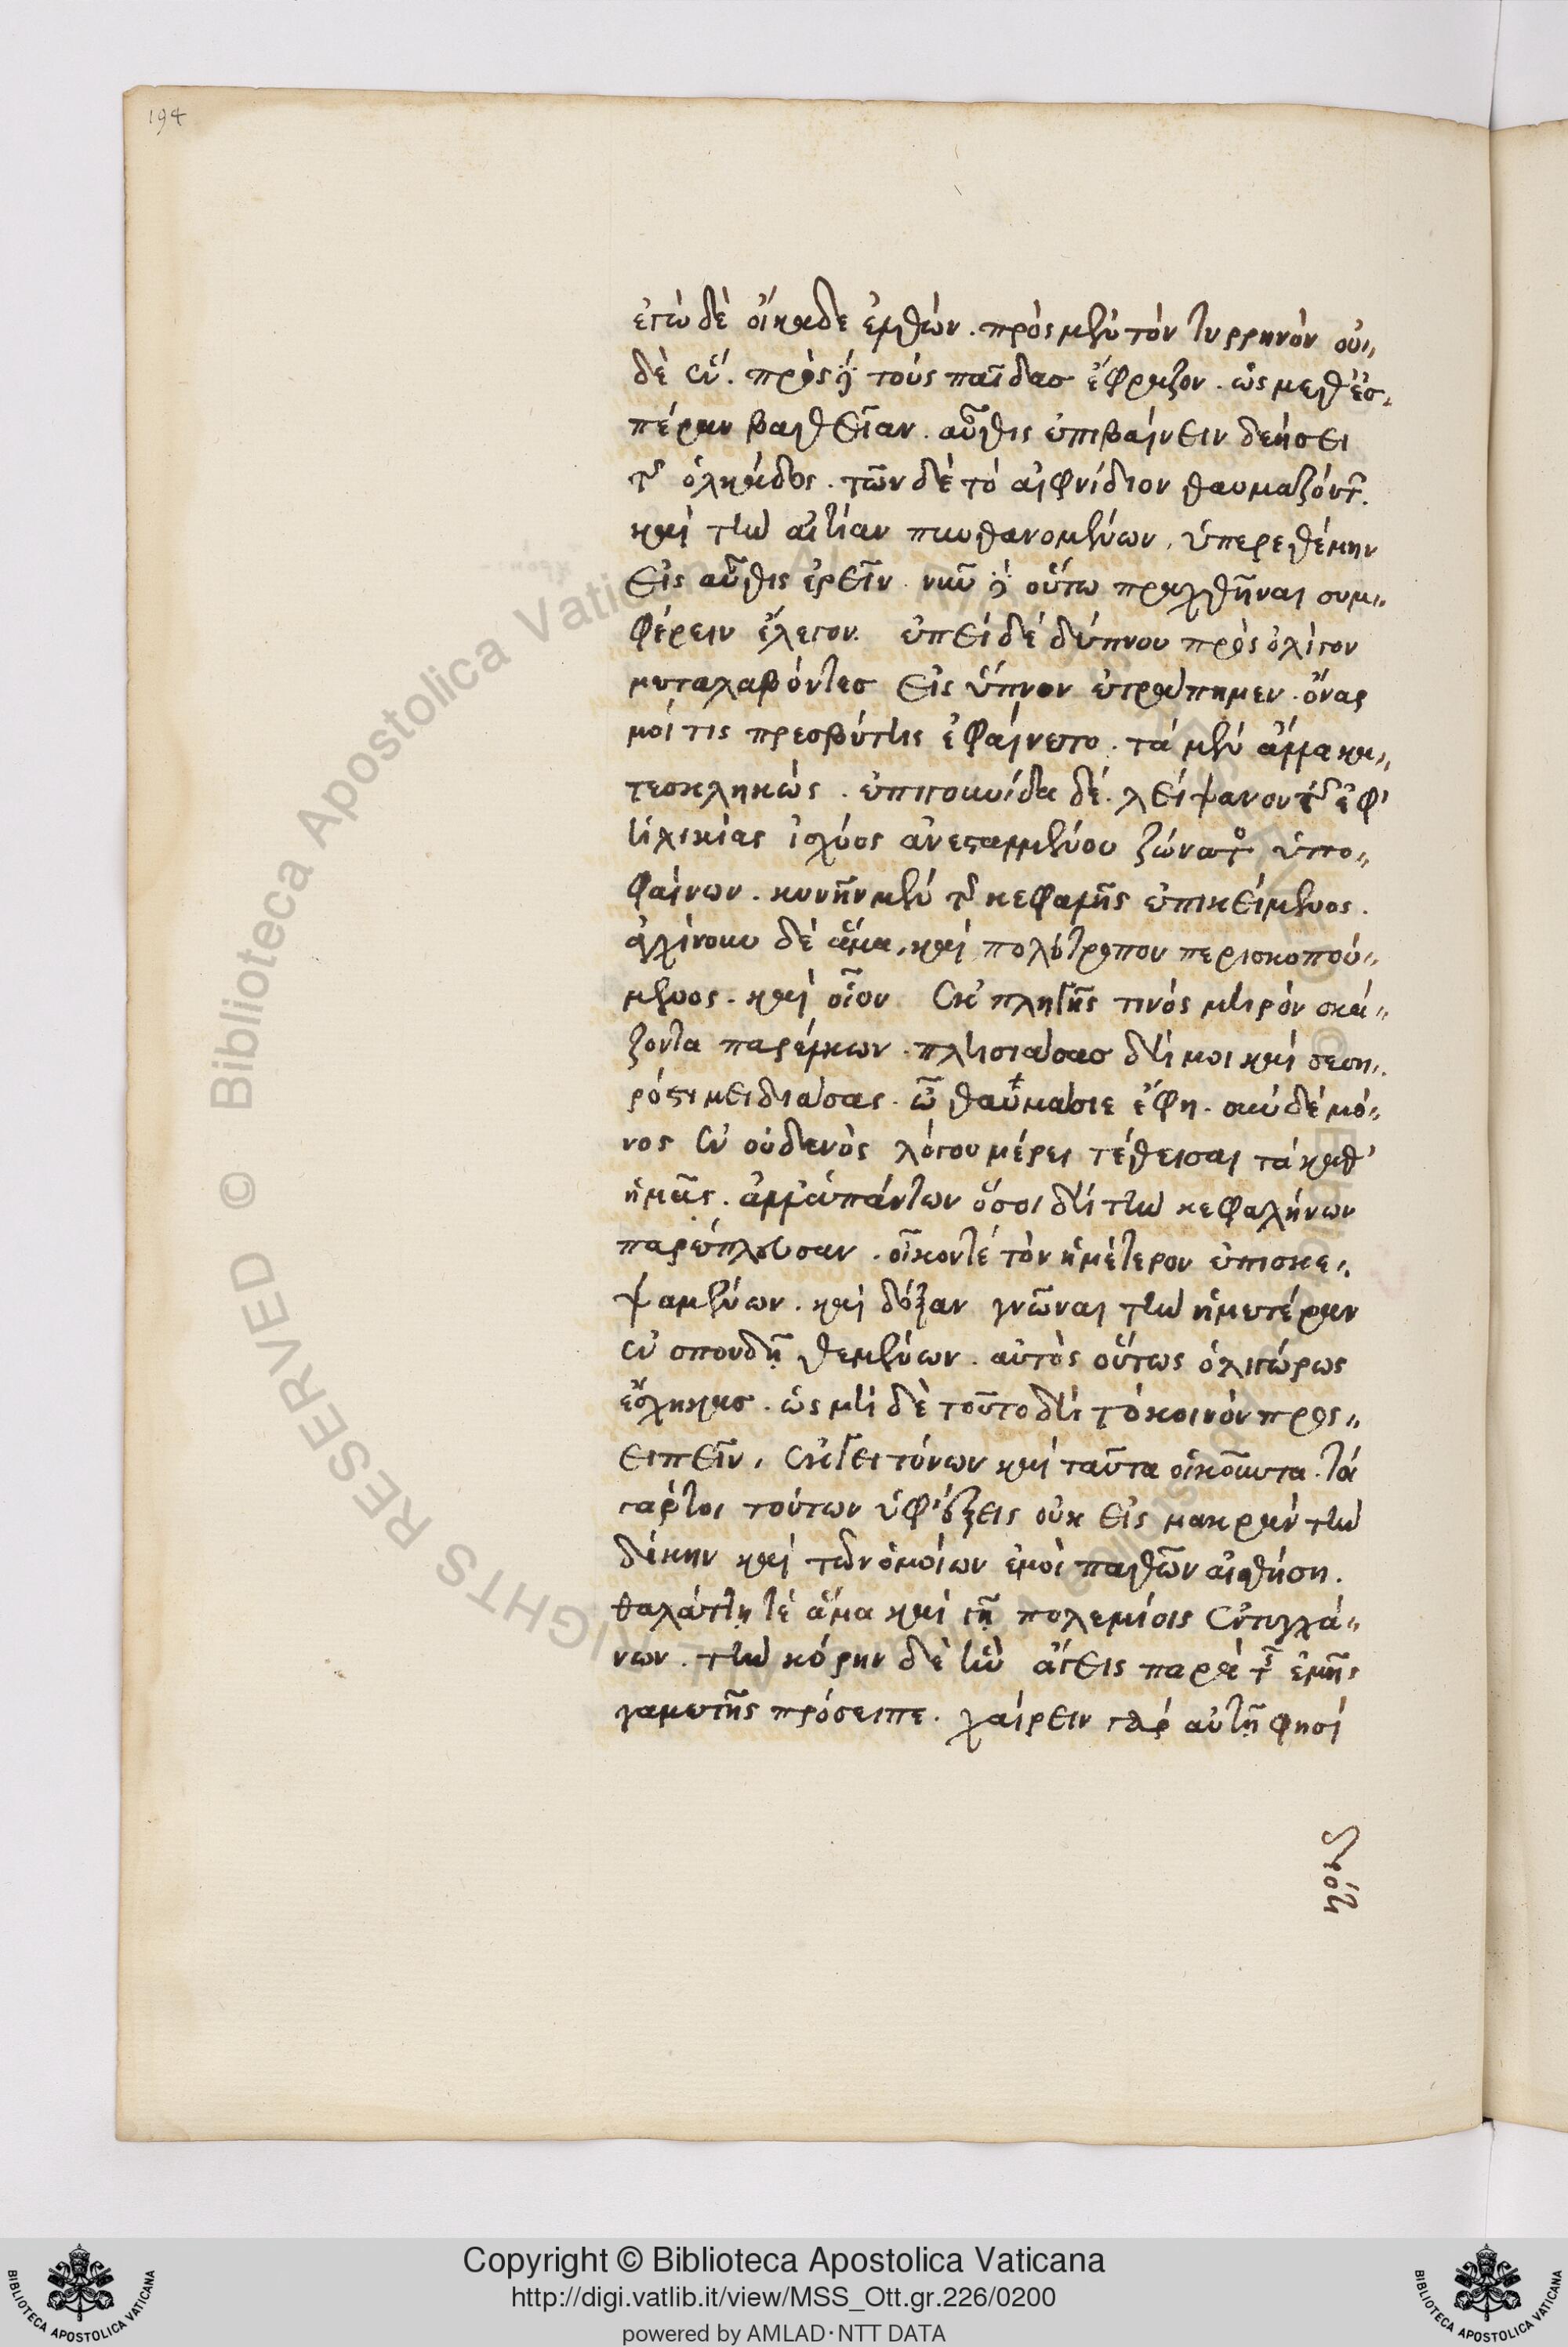 194
ἐγὼ δὲ οἴκαδε ἐλθὼν. πρὸς μὲν τὸν τυρρηνὸν οὐ〃
δὲ ἕν. πρὸς δὲ τοὺς παῖδας ἔφραζον. ὡς μεθ' ἑσ〃
πέραν βαθεῖαν. αὖθις ἐπιβαίνειν δεήσει
τῆς ὁλκάδος. τῶν δὲ τὸ αἰφνίδιον θαυμαζόντων.
καὶ τὴν αἰτίαν πυνθανομένων, ὑπερεθέμην
εἰς αὖθις ἐρεῖν. νῦν δὲ οὕτω πραχθῆναι συμ〃
φέρειν ἔλεγον. ἐπεὶ δὲ δείπνου πρὸς ὀλίγον
μεταλαβόντες εἰς ὕπνον ἐτράπημεν. ὄναρ
μοί τις πρεσβύτης ἐφαίνετο. τὰ μὲν ἄλλα κα〃
τεσκληκὼς. ἐπιγουνίδα δὲ. λείψανον τῆς ἐφ'
ἡλικίας ἰσχύος ἀνεσταλμένου ζώματος ὑπο〃
φαίνων. κυνῆν μὲν τῆς κεφαλῆς ἐπικείμενος.
ἀγχίνουν δὲ ἅμα, καὶ πολύτροπον περισκοπού〃
μενος. καὶ οἷον ἐκ πληγῆς τινός μηρὸν σκά〃
ζοντα παρέλκων. πλησιάσας δή μοι καὶ σεση〃
ρός τι μειδιάσας. ὦ θαυμάσιε ἔφη. σὺ δὲ μό〃
νος ἐν οὐδενὸς λόγου μέρει τέθεισαι τὰ καθ'
ἡμᾶς. ἀλλὰ πάντων ὅσοι δὴ τὴν κεφαλήνων
παρέπλευσαν. οἶκόν τε τὸν ἡμέτερον ἐπισκε〃
ψαμένων. καὶ δόξαν γνῶναι τὴν ἡμετέραν
ἐν σπουδῇ θεμένων. αὐτὸς οὕτως ὀλιγώρως
ἔσχηκας. ὡς μὴ δὲ τοῦτο δὴ τὸ κοινὸν προσ〃
ειπεῖν, ἐκ γειτόνων καὶ ταῦτα οἰκοῦντα. τοι
γάρτοι τούτων ὑφέξεις οὐκ εἰς μακρὰν τὴν
δίκην καὶ τῶν ὁμοίων ἐμοὶ παθῶν αἰσθήσῃ.
θαλάττῃ τὲ ἅμα καὶ γῇ πολεμίοις ἐντυγχά〃
νων. τὴν κόρην δὲ ἣν ἄγεις παρὰ τῆς ἐμῆς
γαμετῆς πρόσειπε. χαίρειν γὰρ αὐτῇ φησί
διότι
Copyright © Biblioteca Apostolica Vaticana
http://digi.vatlib.it/view/MSS_Ott.gr.226/0200
powered by AMLAD·NTT DATA